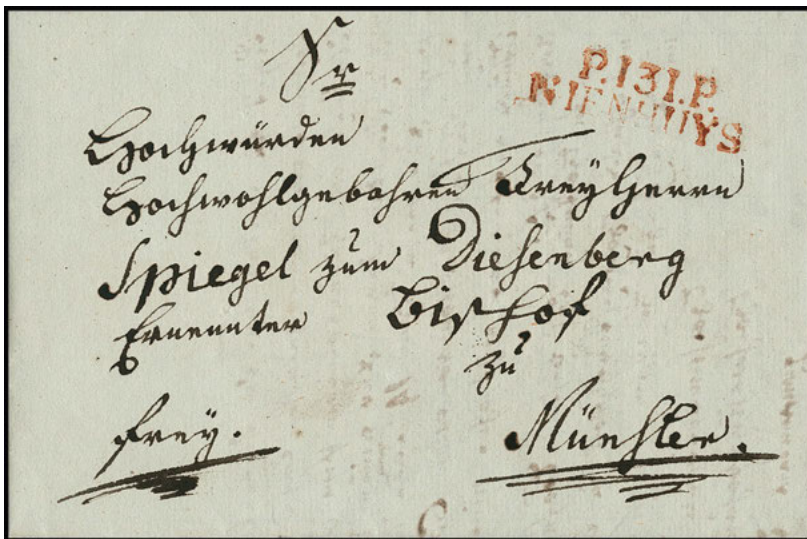 Sr
P.131.P.
NIENHUYS
Hochwürden
Hochwohlgebohren Freyherrn
Spiegel zum Diesenberg
Ernennter Bischof
zu
frey. Münster.